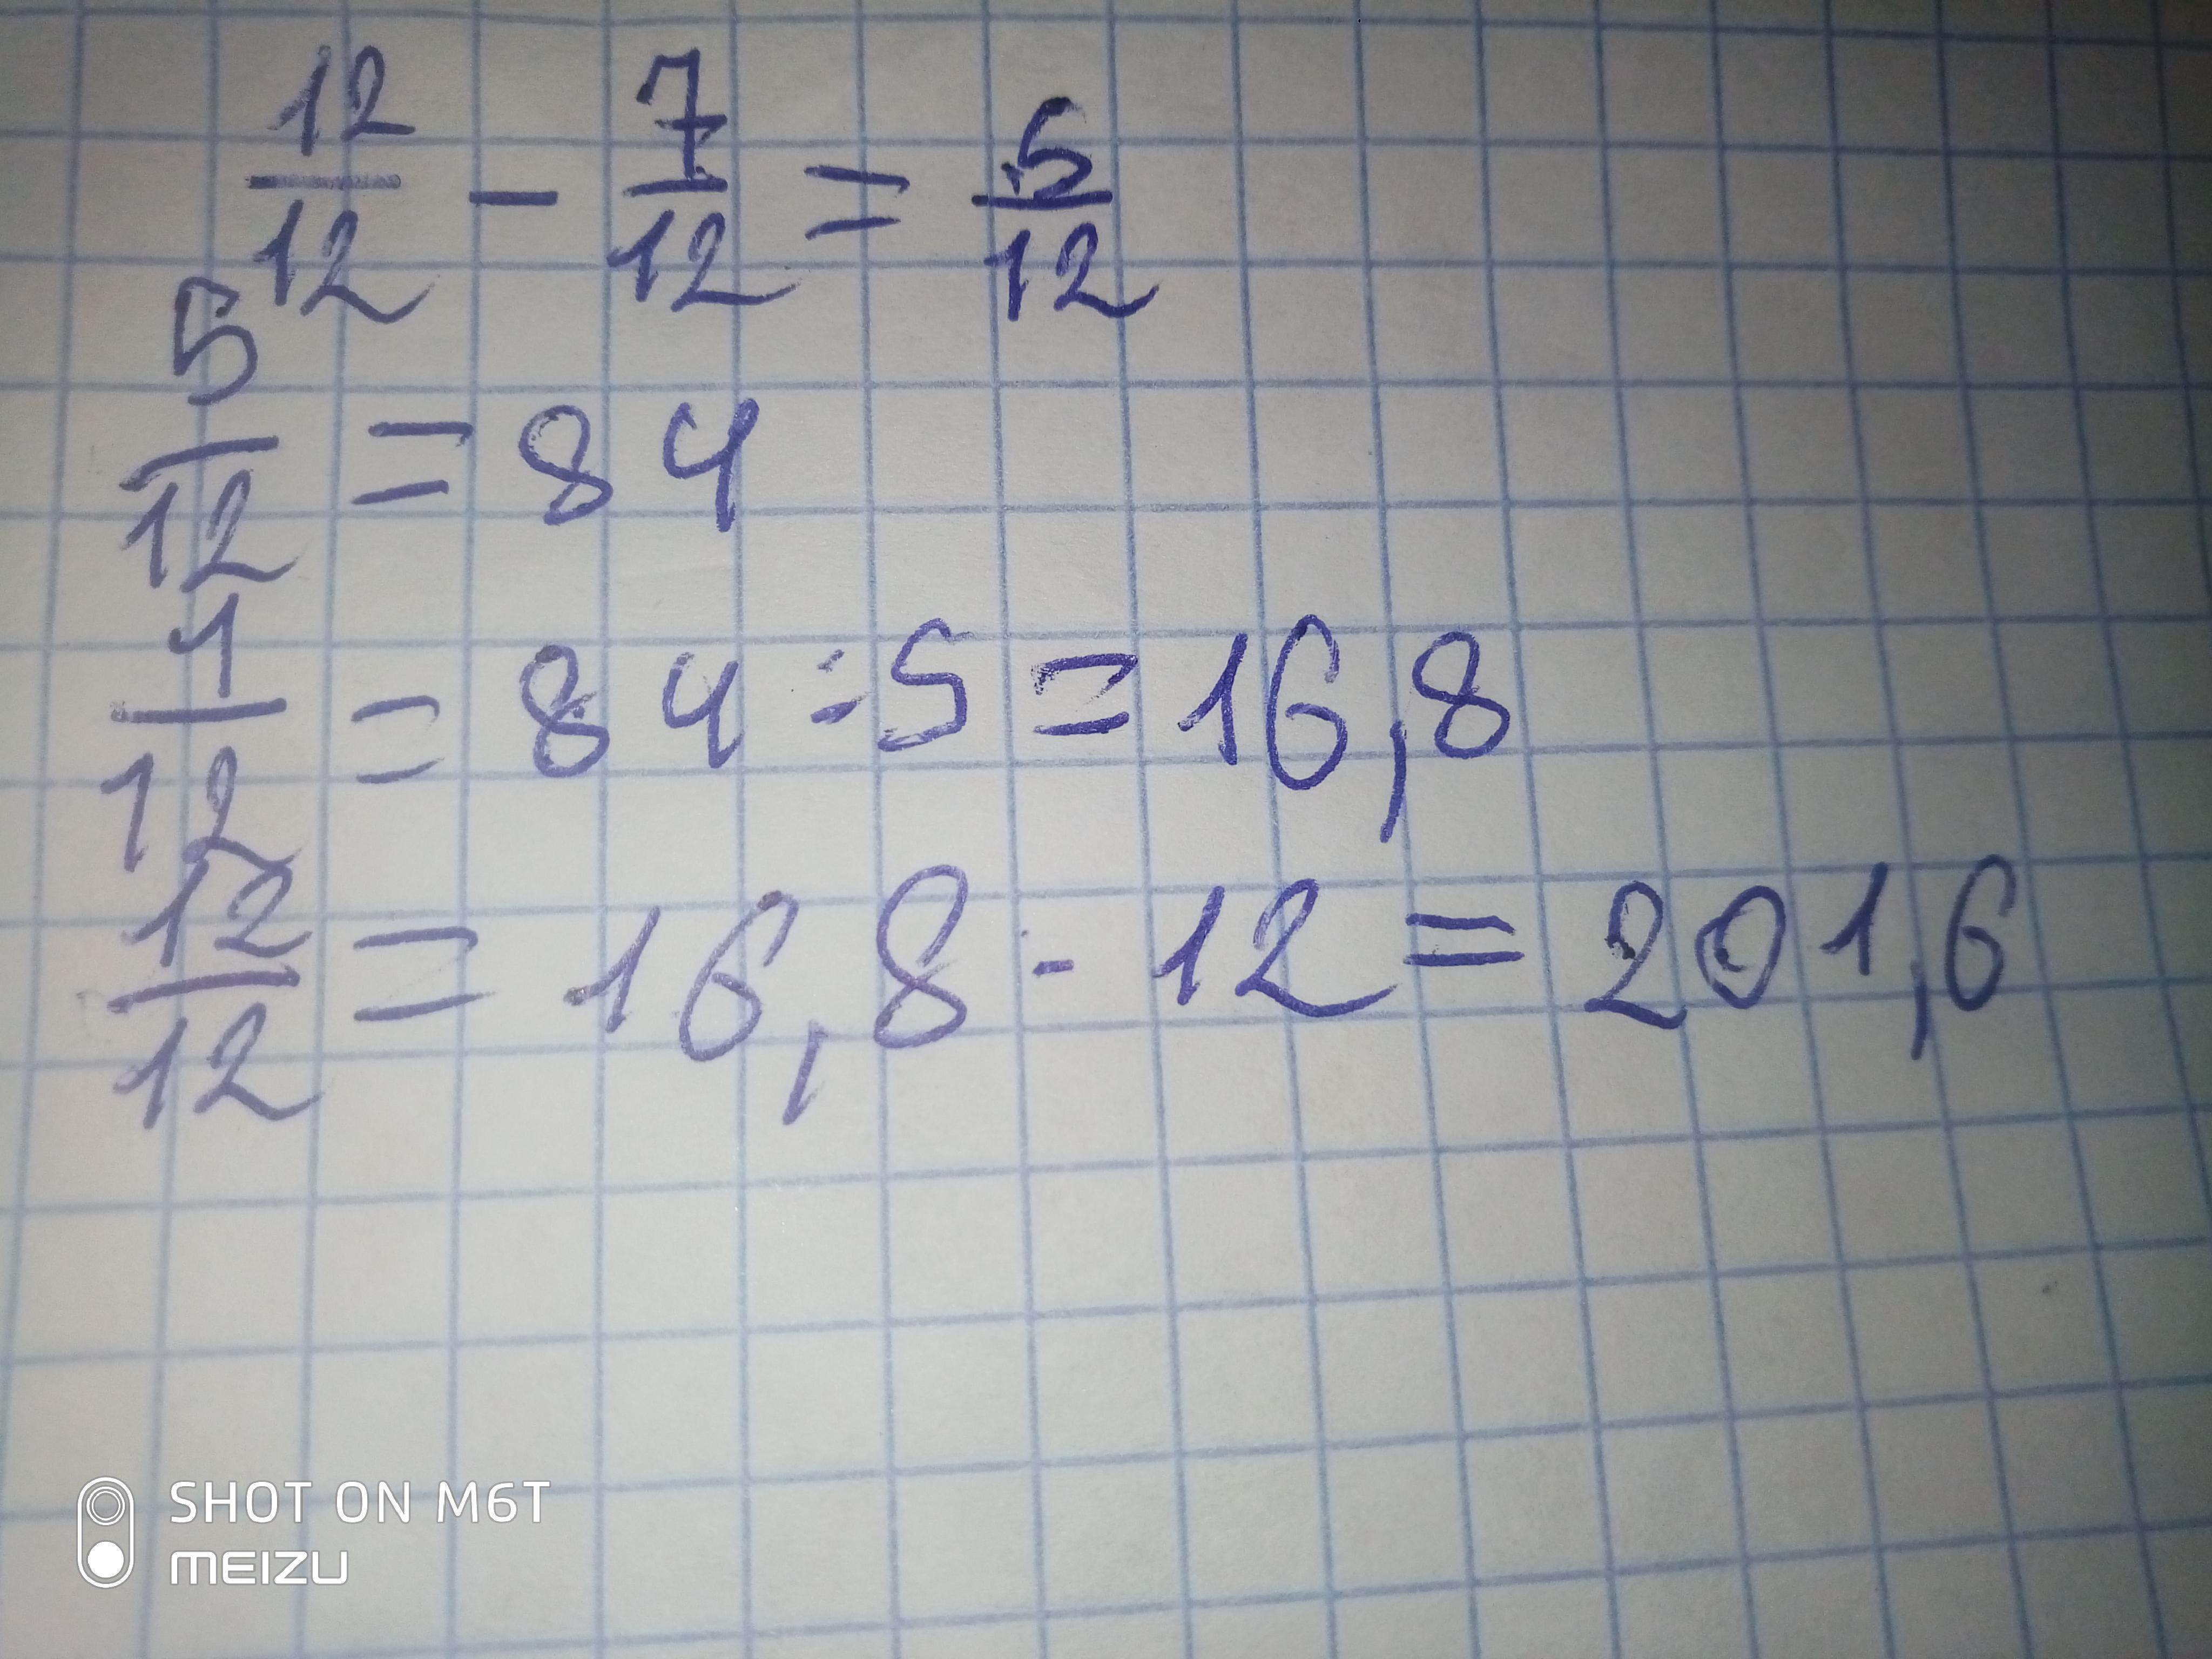 12/12 - 7/12 = 5/12
5/12 = 84
1/12 = 84 ÷ 5 = 16,8
12/12 = 16,8 · 12 = 201,6
SHOT ON M6T
MEIZU